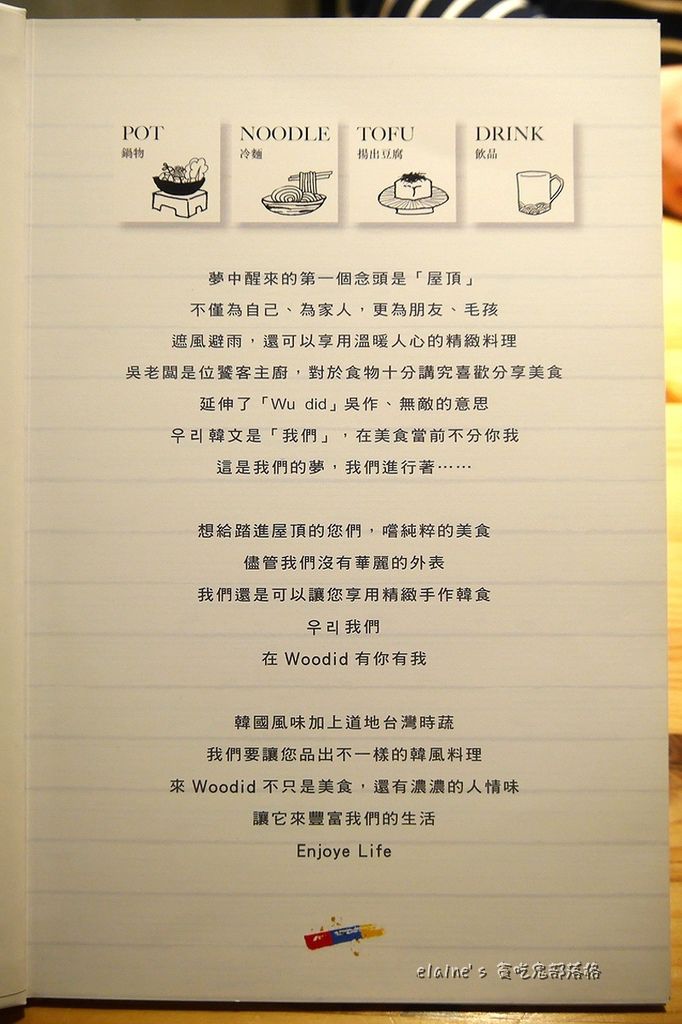 POT
鍋物
NOODLE
冷麵
TOFU
揚出豆腐
DRINK
飲品
夢中醒來的第一個念頭是「屋頂」
不僅為自己、為家人，更為朋友、毛孩
遮風避雨，還可以享用溫暖人心的精緻料理
吳老闆是位饕客主廚，對於食物十分講究喜歡分享美食
延伸了「Wu did」吳作、無敵的意思
우리韓文是「我們」，在美食當前不分你我
這是我們的夢，我們進行著⋯⋯
想給踏進屋頂的您們，嚐純粹的美食
儘管我們沒有華麗的外表
我們還是可以讓您享用精緻手作韓食
우리我們
在 Woodid 有你有我
韓國風味加上道地台灣時蔬
我們要讓您品出不一樣的韓風料理
來 Woodid 不只是美食，還有濃濃的人情味
讓它來豐富我們的生活
Enjoye Life
elaine's 貪吃鬼部落格